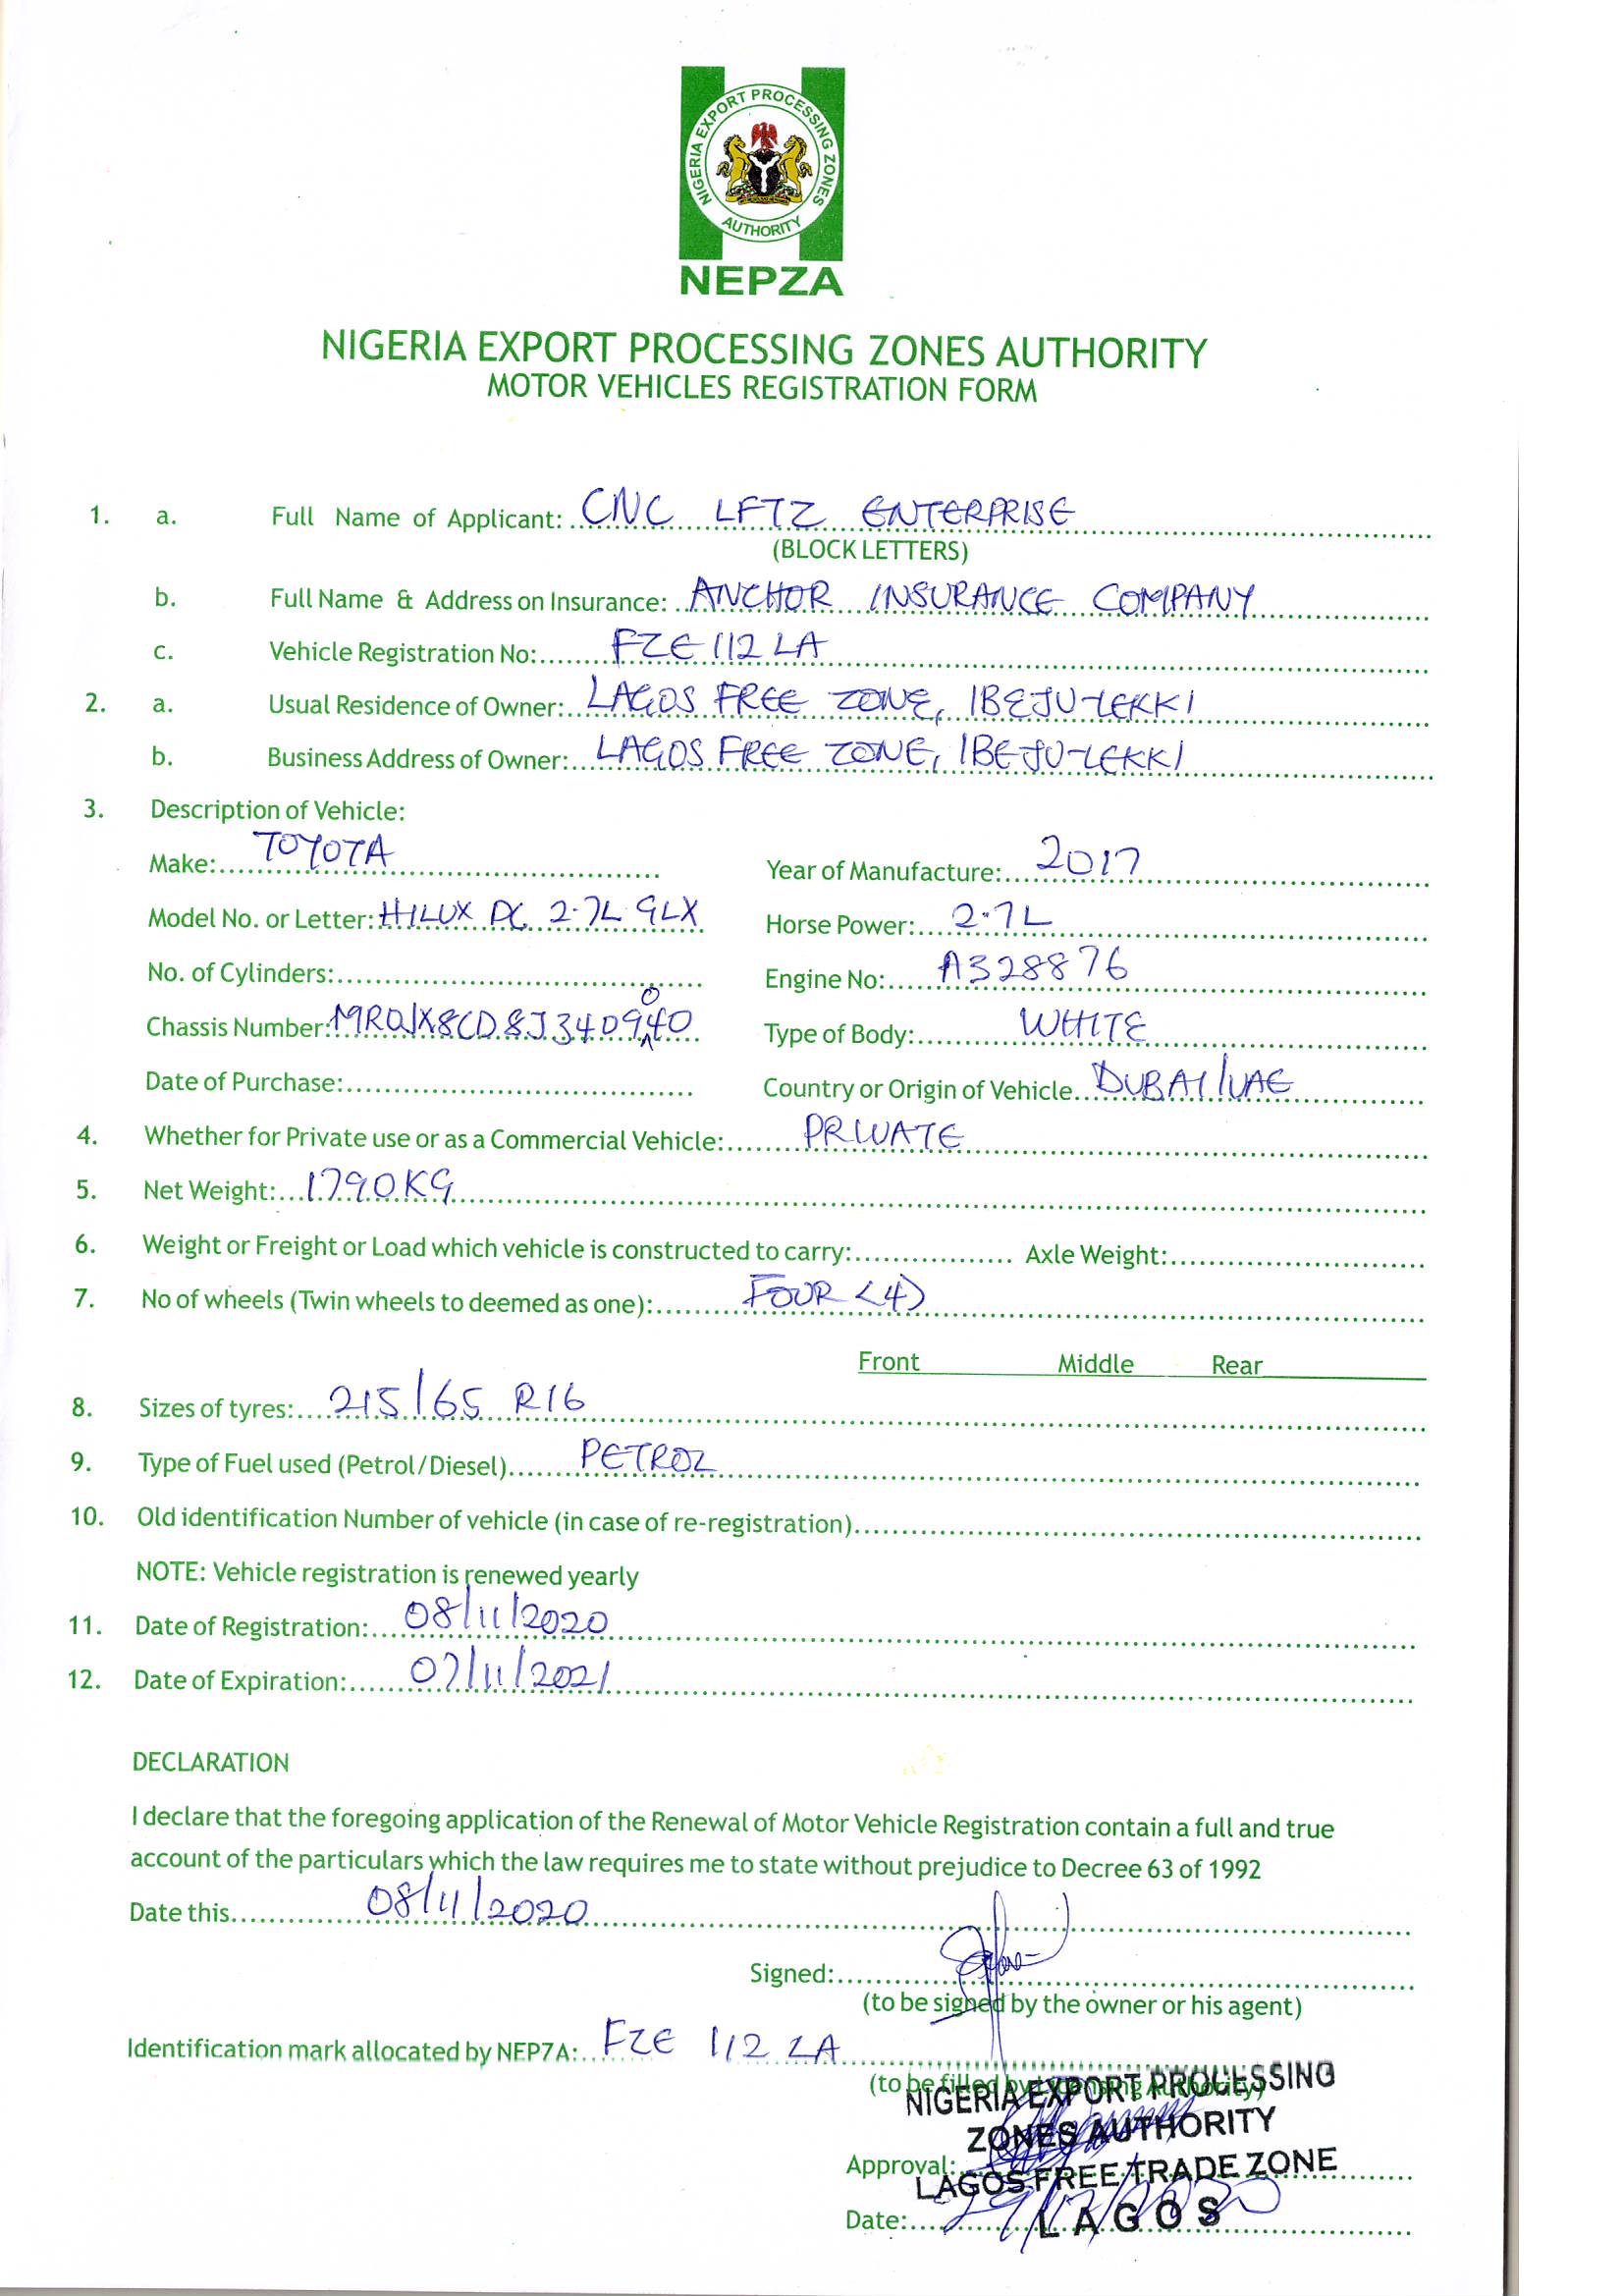 NIGERIA EXPORT PROCESSING ZONES
AUTHORITY
NEPZA
NIGERIA EXPORT PROCESSING ZONES AUTHORITY
MOTOR VEHICLES REGISTRATION FORM
1. a. Full Name of Applicant: CNC LFTZ ENTERPRISE
(BLOCK LETTERS)
b. Full Name & Address on Insurance: ANCHOR INSURANCE COMPANY
c. Vehicle Registration No: FZE 112 LA
2. a. Usual Residence of Owner: LAGOS FREE ZONE, IBEJU-LEKKI
b. Business Address of Owner: LAGOS FREE ZONE, IBEJU-LEKKI
3. Description of Vehicle:
Make: TOYOTA Year of Manufacture: 2017
Model No. or Letter: HILUX DC 2.7L GLX Horse Power: 2.7L
No. of Cylinders: Engine No: A328876
Chassis Number: MR0JX8CD8J3409040 Type of Body: WHITE
Date of Purchase: Country or Origin of Vehicle DUBAI/UAE
4. Whether for Private use or as a Commercial Vehicle: PRIVATE
5. Net Weight: 1790KG
6. Weight or Freight or Load which vehicle is constructed to carry: Axle Weight:
7. No of wheels (Twin wheels to deemed as one): FOUR (4)
Front Middle Rear
8. Sizes of tyres: 215/65 R16
9. Type of Fuel used (Petrol/Diesel) PETROL
10. Old identification Number of vehicle (in case of re-registration)
NOTE: Vehicle registration is renewed yearly
11. Date of Registration: 08/11/2020
12. Date of Expiration: 07/11/2021
DECLARATION
I declare that the foregoing application of the Renewal of Motor Vehicle Registration contain a full and true
account of the particulars which the law requires me to state without prejudice to Decree 63 of 1992
Date this 08/11/2020
Signed:
(to be signed by the owner or his agent)
Identification mark allocated by NEPZA: FZE 112 LA
(to be filled by Licensing Authority)
NIGERIA EXPORT PROCESSING
ZONES AUTHORITY
Approval:
LAGOS FREE TRADE ZONE
Date: 29/12/2020
LAGOS